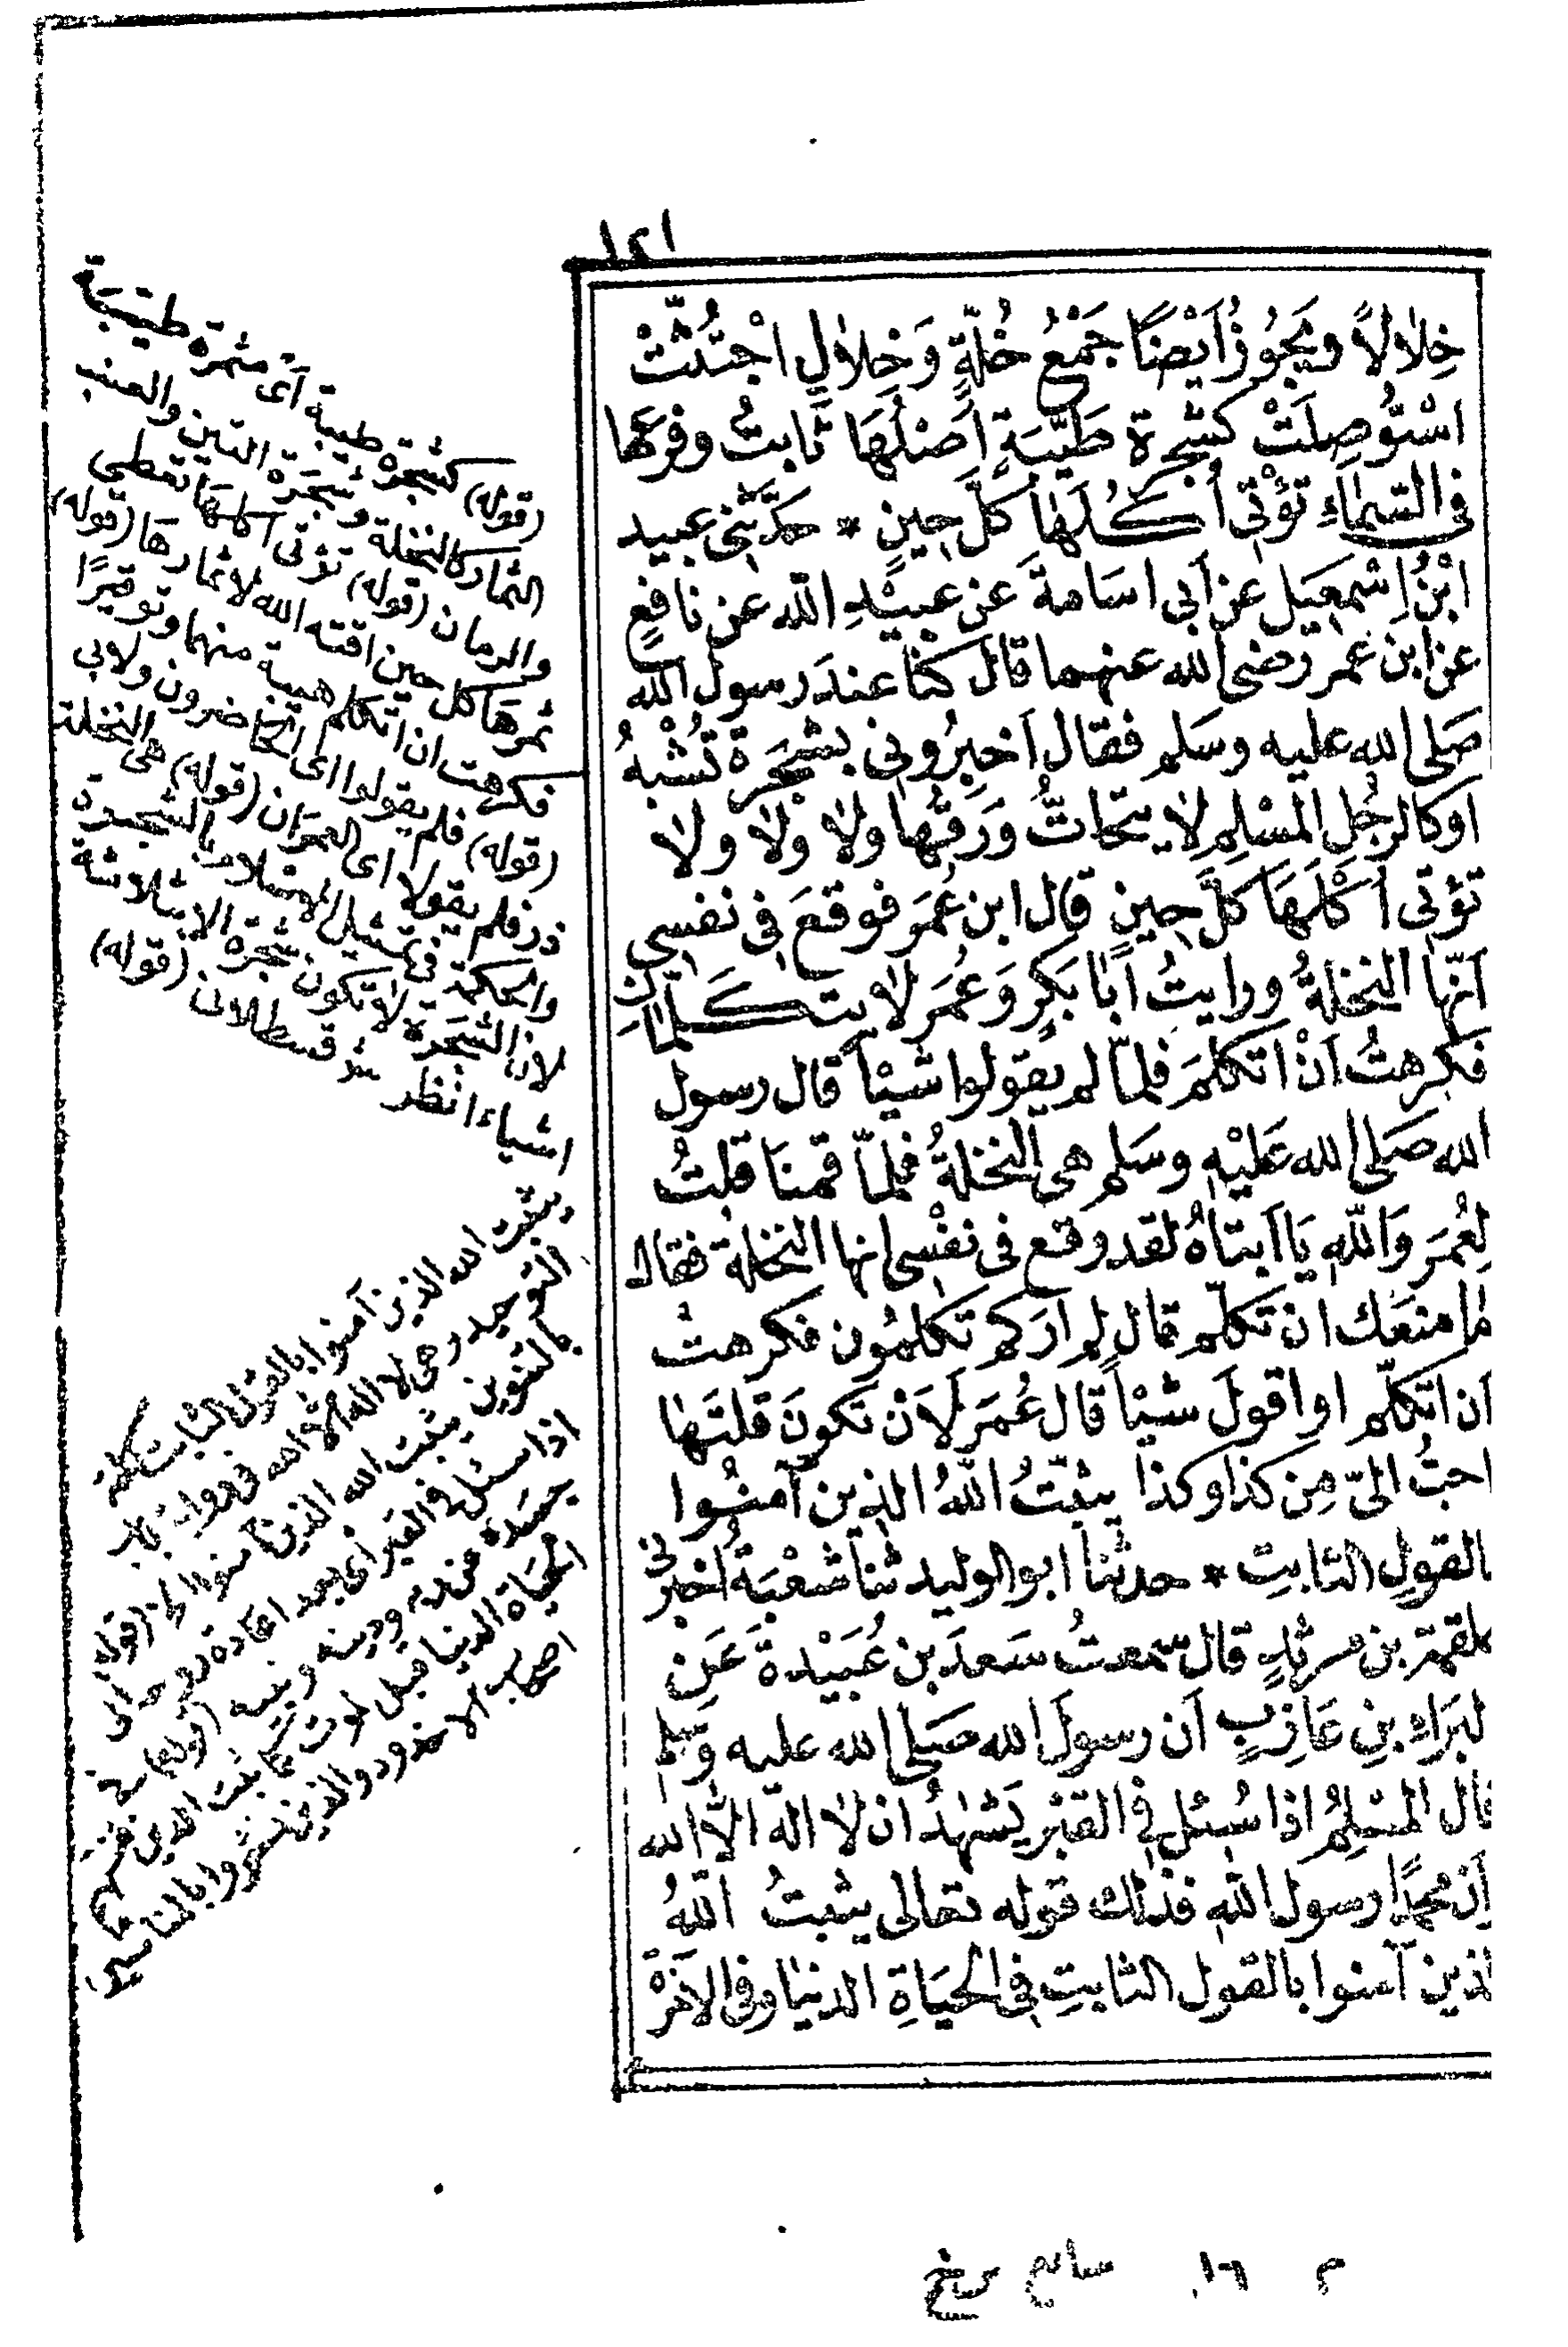 ١٢١
خِلالاً ويَجُوزُ اَيْضًا جَمْعُ خُلّةٍ وَخِلالٍ اجْتُثّتْ
اسْتُوصِلَتْ كشجرة طَيّبَةٍ اَصْلُهَا ثَابتٌ وفرعها
فى السّماءِ تؤْتى اُكُلَهَا كلّ حِينٍ * حدّثنى عبيد
ابْنُ اِسْمعِيَل عن اَبى اسَامةَ عَن عبيْدِ اللّه عن نافعٍ
عن ابن عُمر رضى الله عنهما قال كنّا عندَ رسول الله
صَلى الله عليه وسَلم فقال اَخبِرُونى بشجَرة تُشْبهُ
اوكالرجُلِ المسْلِمِ لا يتحاتُّ وَرَقُها ولا ولا ولا
تؤتى اُكْلَهَا كلّ حِينٍ قال ابن عُمَر فوقعَ فى نفسِى
اَنّها النخلةُ ورايتُ اَبا بَكرٍ وَعُمَر لا يتكلمانِ
فكرهتُ اَنْ اتكلمَ فلمّا لم يقولوا شيْأً قال رسول
الله صَلى الله عَليْهِ وسَلم هى النخلةُ فلمّا قمنَا قلتُ
لِعُمَرَ وَاللّهِ يَا اَبتَاهُ لقد وقع فى نفْسِى انها النخلة فقال
ما منعَك ان تكلّم قال لم اَرَكم تكلمُون فكرهتُ
اَن اتكلّم او اقولَ شيْأً قال عُمَر لَاَنْ تكونَ قلتَها
احبُّ الىّ مِن كذا وكذا يثبّتُ اللّهُ الذين آمنُوا
بالقولِ الثابتِ * حدثنا ابو الوليد ثنا شعْبَةُ اخبرنى
علقمة بن مرثدٍ قال سمعتُ سَعدَ بن عُبَيْدةَ عَن
البَرَاءِ بنِ عَازِبٍ اَن رسولَ الله صَلى الله عليه وَسلم
قال المسْلِمُ اذا سُئل فى القبْر يَشْهدُ ان لا الهَ الاّ الله
واَن محمدًا رسول اللهِ فذلك قوله تعالى يثبتُ اللّهُ
الذين آمنوا بالقول الثابتِ فى الحيَاةِ الدنيا وفى الآخرَة
(قوله) كشجرة طيبة اَى مثمرة طيّبَة
الثمار كالنخلة وشجَرة التين والعنب
والرمان (قوله) تؤتى اكلهَا تعطى
ثمرهَا كل حين اقته الله لاثمارهَا (قوله)
فكرهت ان اتكلم هيبة منهما وتوقيرًا
(قوله) فلم يقولوا اى الحاضرون ولابى
ذر فلم يقولا اى العمَران (قوله) هى النخلة
والحكمة فى تمثيل الاسلام بالشجرة
لان الشجرة لا تكون شجرة الا بثلاثة
اشياء انظر قسطلانى (قوله)
يثبت الله الذين آمنوا بالقول الثابت كلمة
التوحيد وهى لا اله الا الله
بالتنوين يثبت الله الذين آمنوا الخ (قوله)
اذا سئل فى القبر اى بعد اعادة روحه الى
جسَده عن ربه ودينه ونبيه (قوله) فى
الحيَاة الدنيا قبل الموت كما ثبت الذين
اصحاب الاخدود والذين نشروا بالمناشير
٢ ١٦